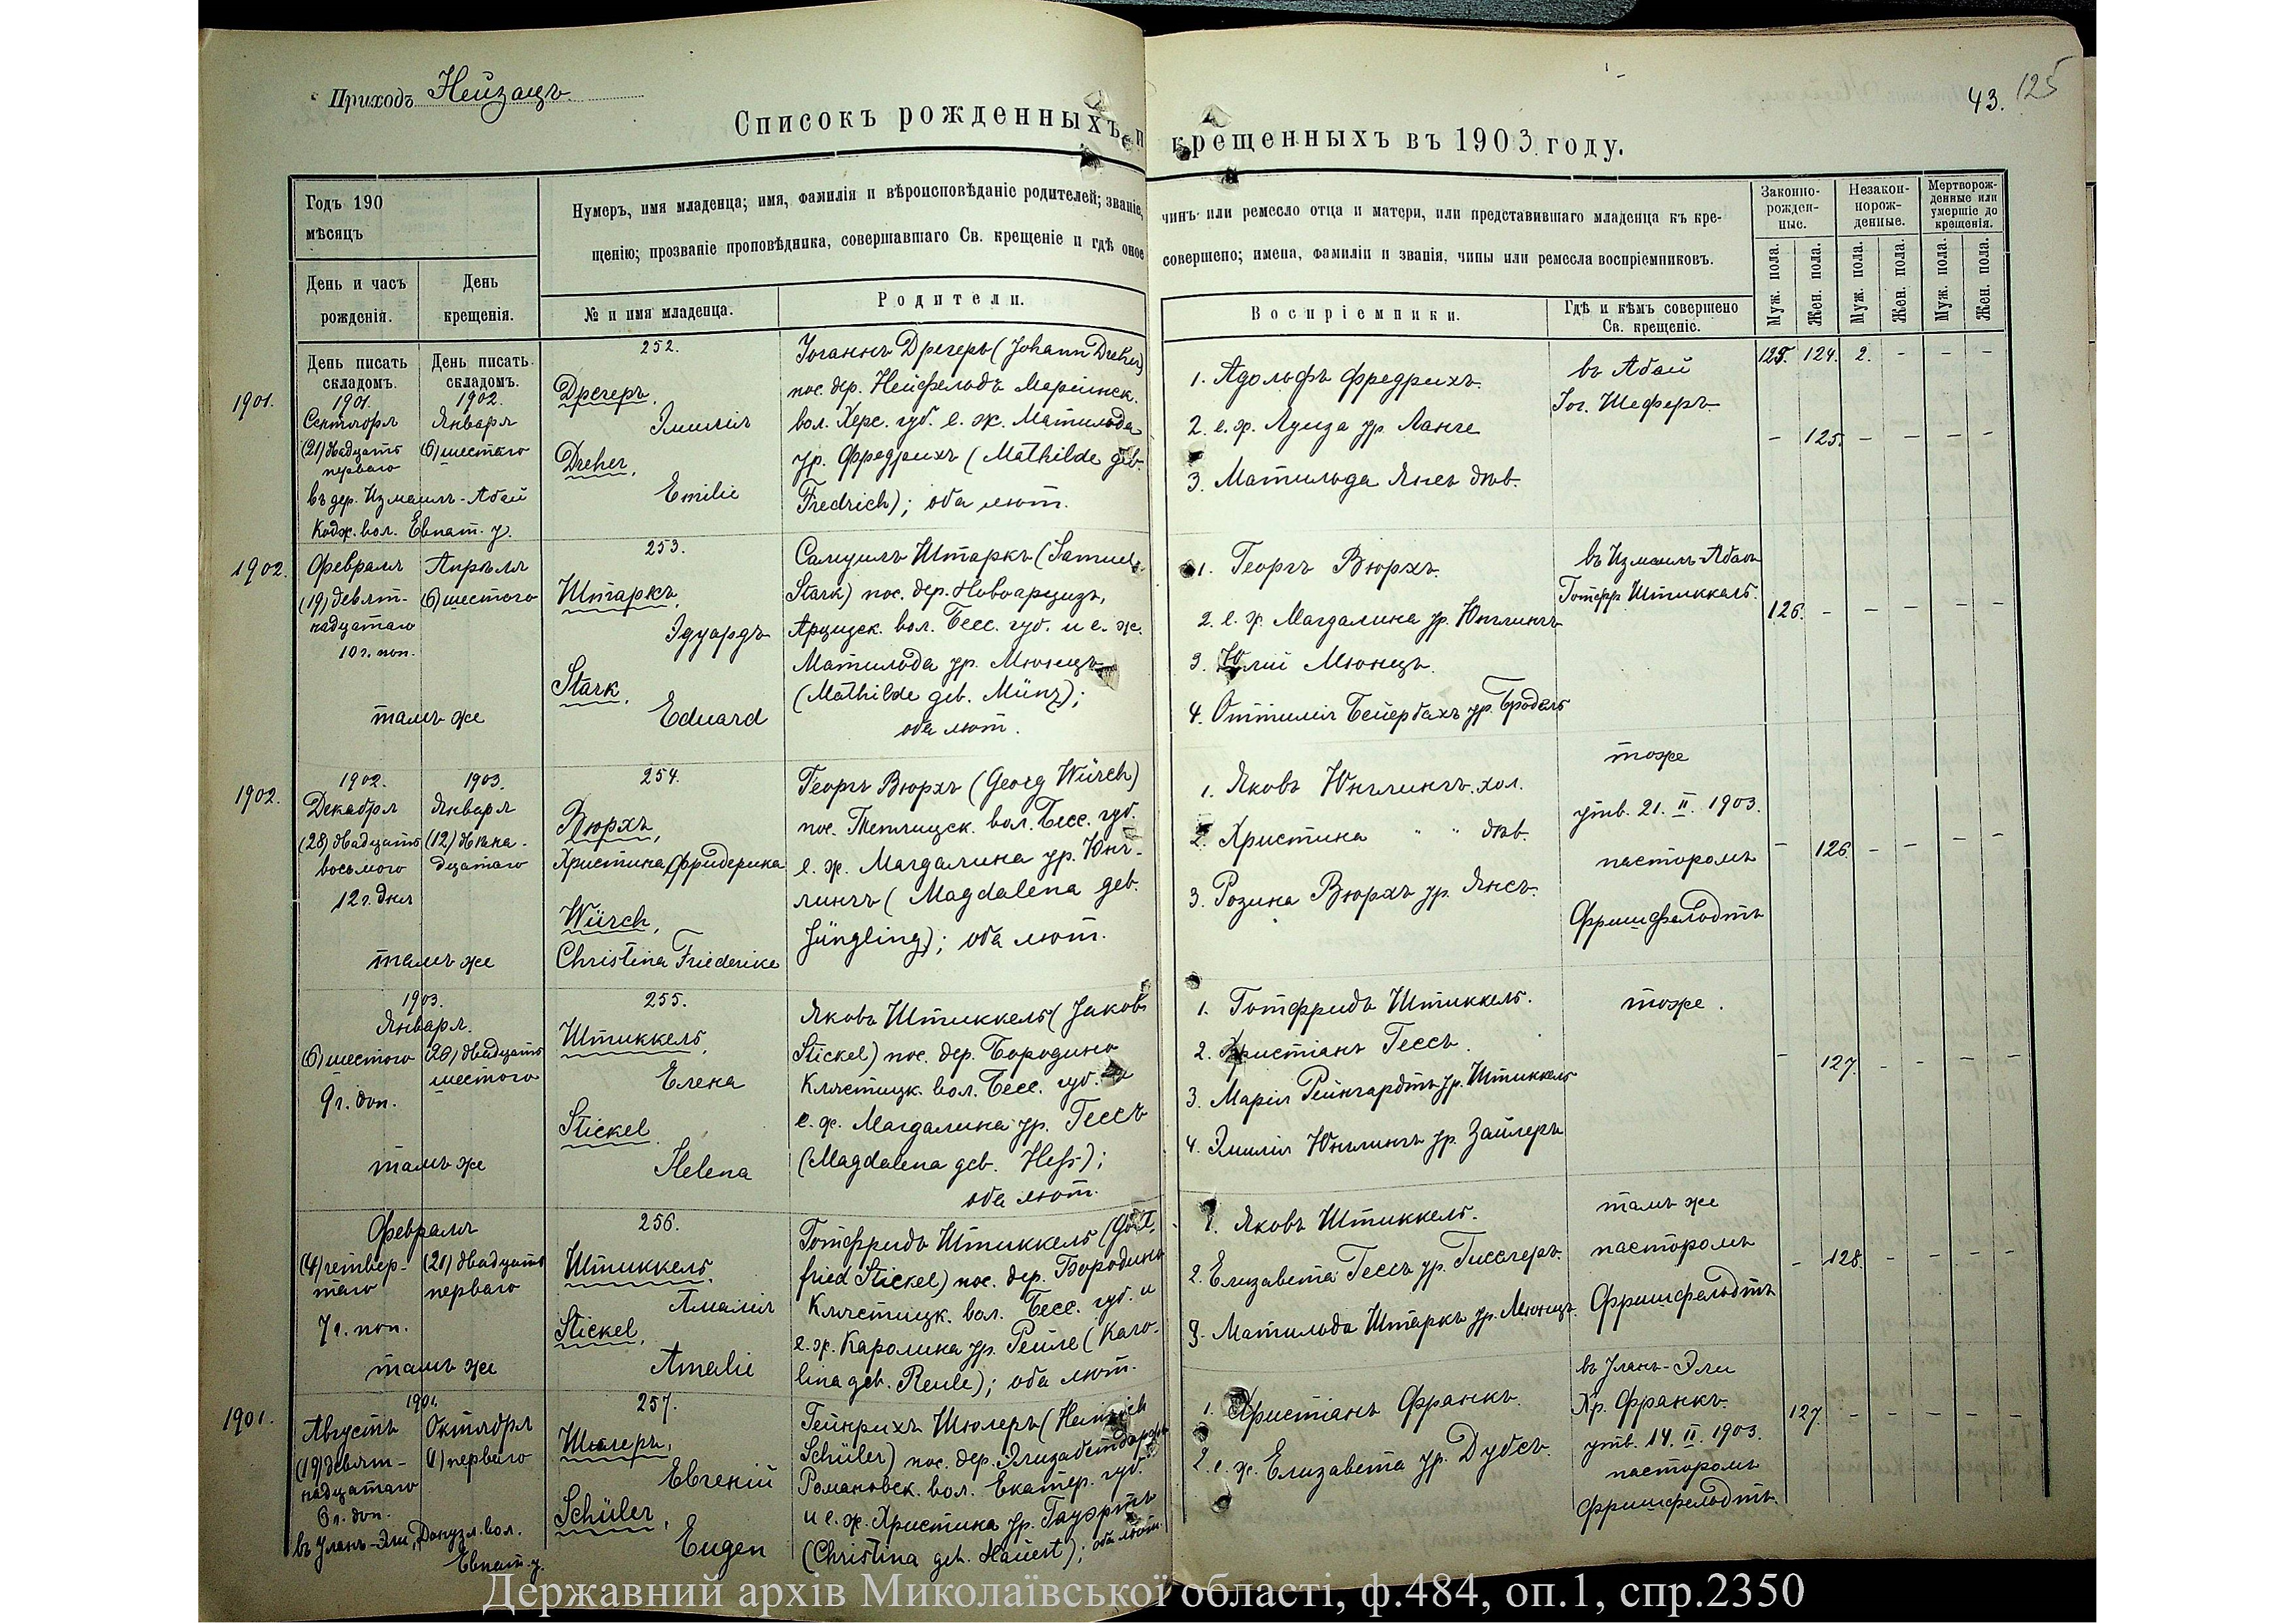 Приходъ Нейзацъ.
43. 125
Списокъ рожденныхъ и крещенныхъ въ 1903 году.
Годъ 190
мѣсяцъ
День и часъ
рожденія.
День
крещенія.
Нумеръ, имя младенца; имя, фамилія и вѣроисповѣданіе родителей; званіе, чинъ или ремесло отца и матери, или представившаго младенца къ кре-
щенію; прозваніе проповѣдника, совершавшаго Св. крещеніе и гдѣ оное совершено; имена, фамиліи и званія, чины или ремесла воспріемниковъ.
№ и имя младенца.
Родители.
Воспріемники.
Гдѣ и кѣмъ совершено
Св. крещеніе.
Законно-
рожден-
ные.
Незакон-
норож-
денные.
Мертворож-
денные или
умершіе до
крещенія.
Муж. пола.
Жен. пола.
Муж. пола.
Жен. пола.
Муж. пола.
Жен. пола.
1901.
День писать
складомъ.
1901.
Сентября
(21) двадцать
перваго
День писать
складомъ.
1902.
Января
(6) шестаго
въ дер. Измаилъ-Абай
Кадж. вол. Евпат. у.
252.
Дрегеръ,
Эмилія
Dreher,
Emilie
Іоганнъ Дрегеръ (Johann Dreher)
пос. дер. Нейфельдъ Маріинск.
вол. Херс. губ. е. ж. Матильда
ур. Фредрихъ (Mathilde geb.
Fredrich); оба лют.
1. Адольфъ Фредрихъ.
2. е. ж. Луиза ур. Ланге
3. Матильда Янсъ дѣв.
въ Абай
Іог. Шеферъ.
125. 124. 2. - - -
- 125. - - - -
1902.
Февраля
(19) девят-
надцатаго
10 ч. поп.
Апрѣля
(6) шестого
тамъ же
253.
Штаркъ,
Эдуардъ
Stark,
Eduard
Самуилъ Штаркъ (Samuel
Stark) пос. дер. Новоарцизъ,
Арцизск. вол. Бесс. губ. и е. ж.
Матильда ур. Мюнцъ
(Mathilde geb. Münz);
оба лют.
1. Георгъ Вюрхъ.
2. е. ж. Магдалина ур. Юнглингъ
3. Юлій Мюнцъ.
4. Оттилія Бейербахъ ур.
въ Измаилъ-Абаѣ
Готфр. Штиккель.
126. - - - - -
1902.
1902.
Декабря
(28) двадцать
восьмого
12 ч. дня
1903.
Января
(12) двѣна-
дцатаго
тамъ же
254.
Вюрхъ,
Христина Фридерика
Würch,
Christina Friederike
Георгъ Вюрхъ (Georg Würch)
пос. Теплицск. вол. Бесс. губ.
е. ж. Магдалина ур. Юнг-
лингъ (Magdalena geb.
Jüngling); оба лют.
1. Яковъ Юнглингъ. хол.
2. Христина " " дѣв.
3. Розина Вюрхъ ур. Янсъ.
тоже
утв. 21. II. 1903.
пасторомъ
Фришфельдтъ
- 126. - - - -
1903.
Января.
(6) шестого
9 ч. доп.
(26) двадцать
шестого
тамъ же
255.
Штиккель,
Елена
Stickel
Helena
Яковъ Штиккель (Jakob
Stickel) пос. дер. Бородино
Клястицк. вол. Бесс. губ. и
е. ж. Магдалина ур. Гессъ
(Magdalena geb. Heß);
оба лют.
1. Готфридъ Штиккель.
2. Христіанъ Гессъ.
3. Марія Рейнгардтъ ур. Штиккель
4. Эмилія Юнглингъ ур. Зайлеръ
тоже.
- 127. - - - -
Февраля
(4) четвер-
таго
7 ч. поп.
(21) двадцать
перваго
тамъ же
256.
Штиккель,
Амалія
Stickel,
Amalie
Готфридъ Штиккель (Gott-
fried Stickel) пос. дер. Бородино
Клястицк. вол. Бесс. губ. и
е. ж. Каролина ур. Рейле (Karo-
lina geb. Reule); оба лют.
1. Яковъ Штиккель.
2. Елизавета Гессъ ур.
3. Матильда Штаркъ ур. Мюнцъ.
тамъ же
пасторомъ
Фришфельдтъ
- 128. - - - -
1901.
1901.
Августъ
(19) девят-
надцатаго
6 ч. доп.
Октября
(1) перваго
въ Уланъ-Эли, Донузл. вол.
Евпат. у.
257.
Шюлеръ,
Евгеній
Schüler,
Eugen
Гейнрихъ Шюлеръ (Heinrich
Schüler) пос. дер. Элизабетдорфъ
Романовск. вол. Екатер. губ.
и е. ж. Христина ур. Гауэртъ
(Christina geb. Hauert); оба лют.
1. Христіанъ Франкъ.
2. е. ж. Елизавета ур. Дубсъ.
въ Уланъ-Эли
Хр. Франкъ.
утв. 14. II. 1903.
пасторомъ
Фришфельдтъ.
127. - - - - -
Державний архів Миколаївської області, ф.484, оп.1, спр.2350